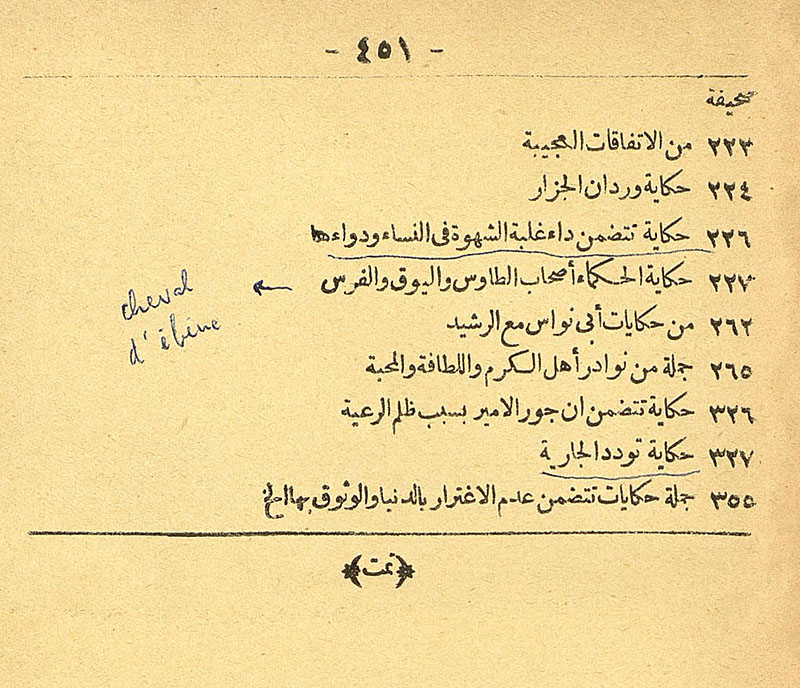 - ٤٥١ -
صحيفة
٢٢٣ من الاتفاقات العجيبة
٢٢٤ حكاية وردان الجزار
٢٢٦ حكاية تتضمن داء غلبة الشهوة فى النساء ودواءها
٢٢٧ حكاية الحكماء أصحاب الطاوس والبوق والفرس
cheval
d'ébène
٢٦٢ من حكايات أبى نواس مع الرشيد
٢٦٥ جملة من نوادر أهل الكرم واللطافة والمحبة
٣٢٦ حكاية تتضمن ان جور الامير بسبب ظلم الرعية
٣٢٧ حكاية تودد الجارية
٣٥٥ جملة حكايات تتضمن عدم الاغترار بالدنيا والوثوق بها الخ
﴿تمت﴾